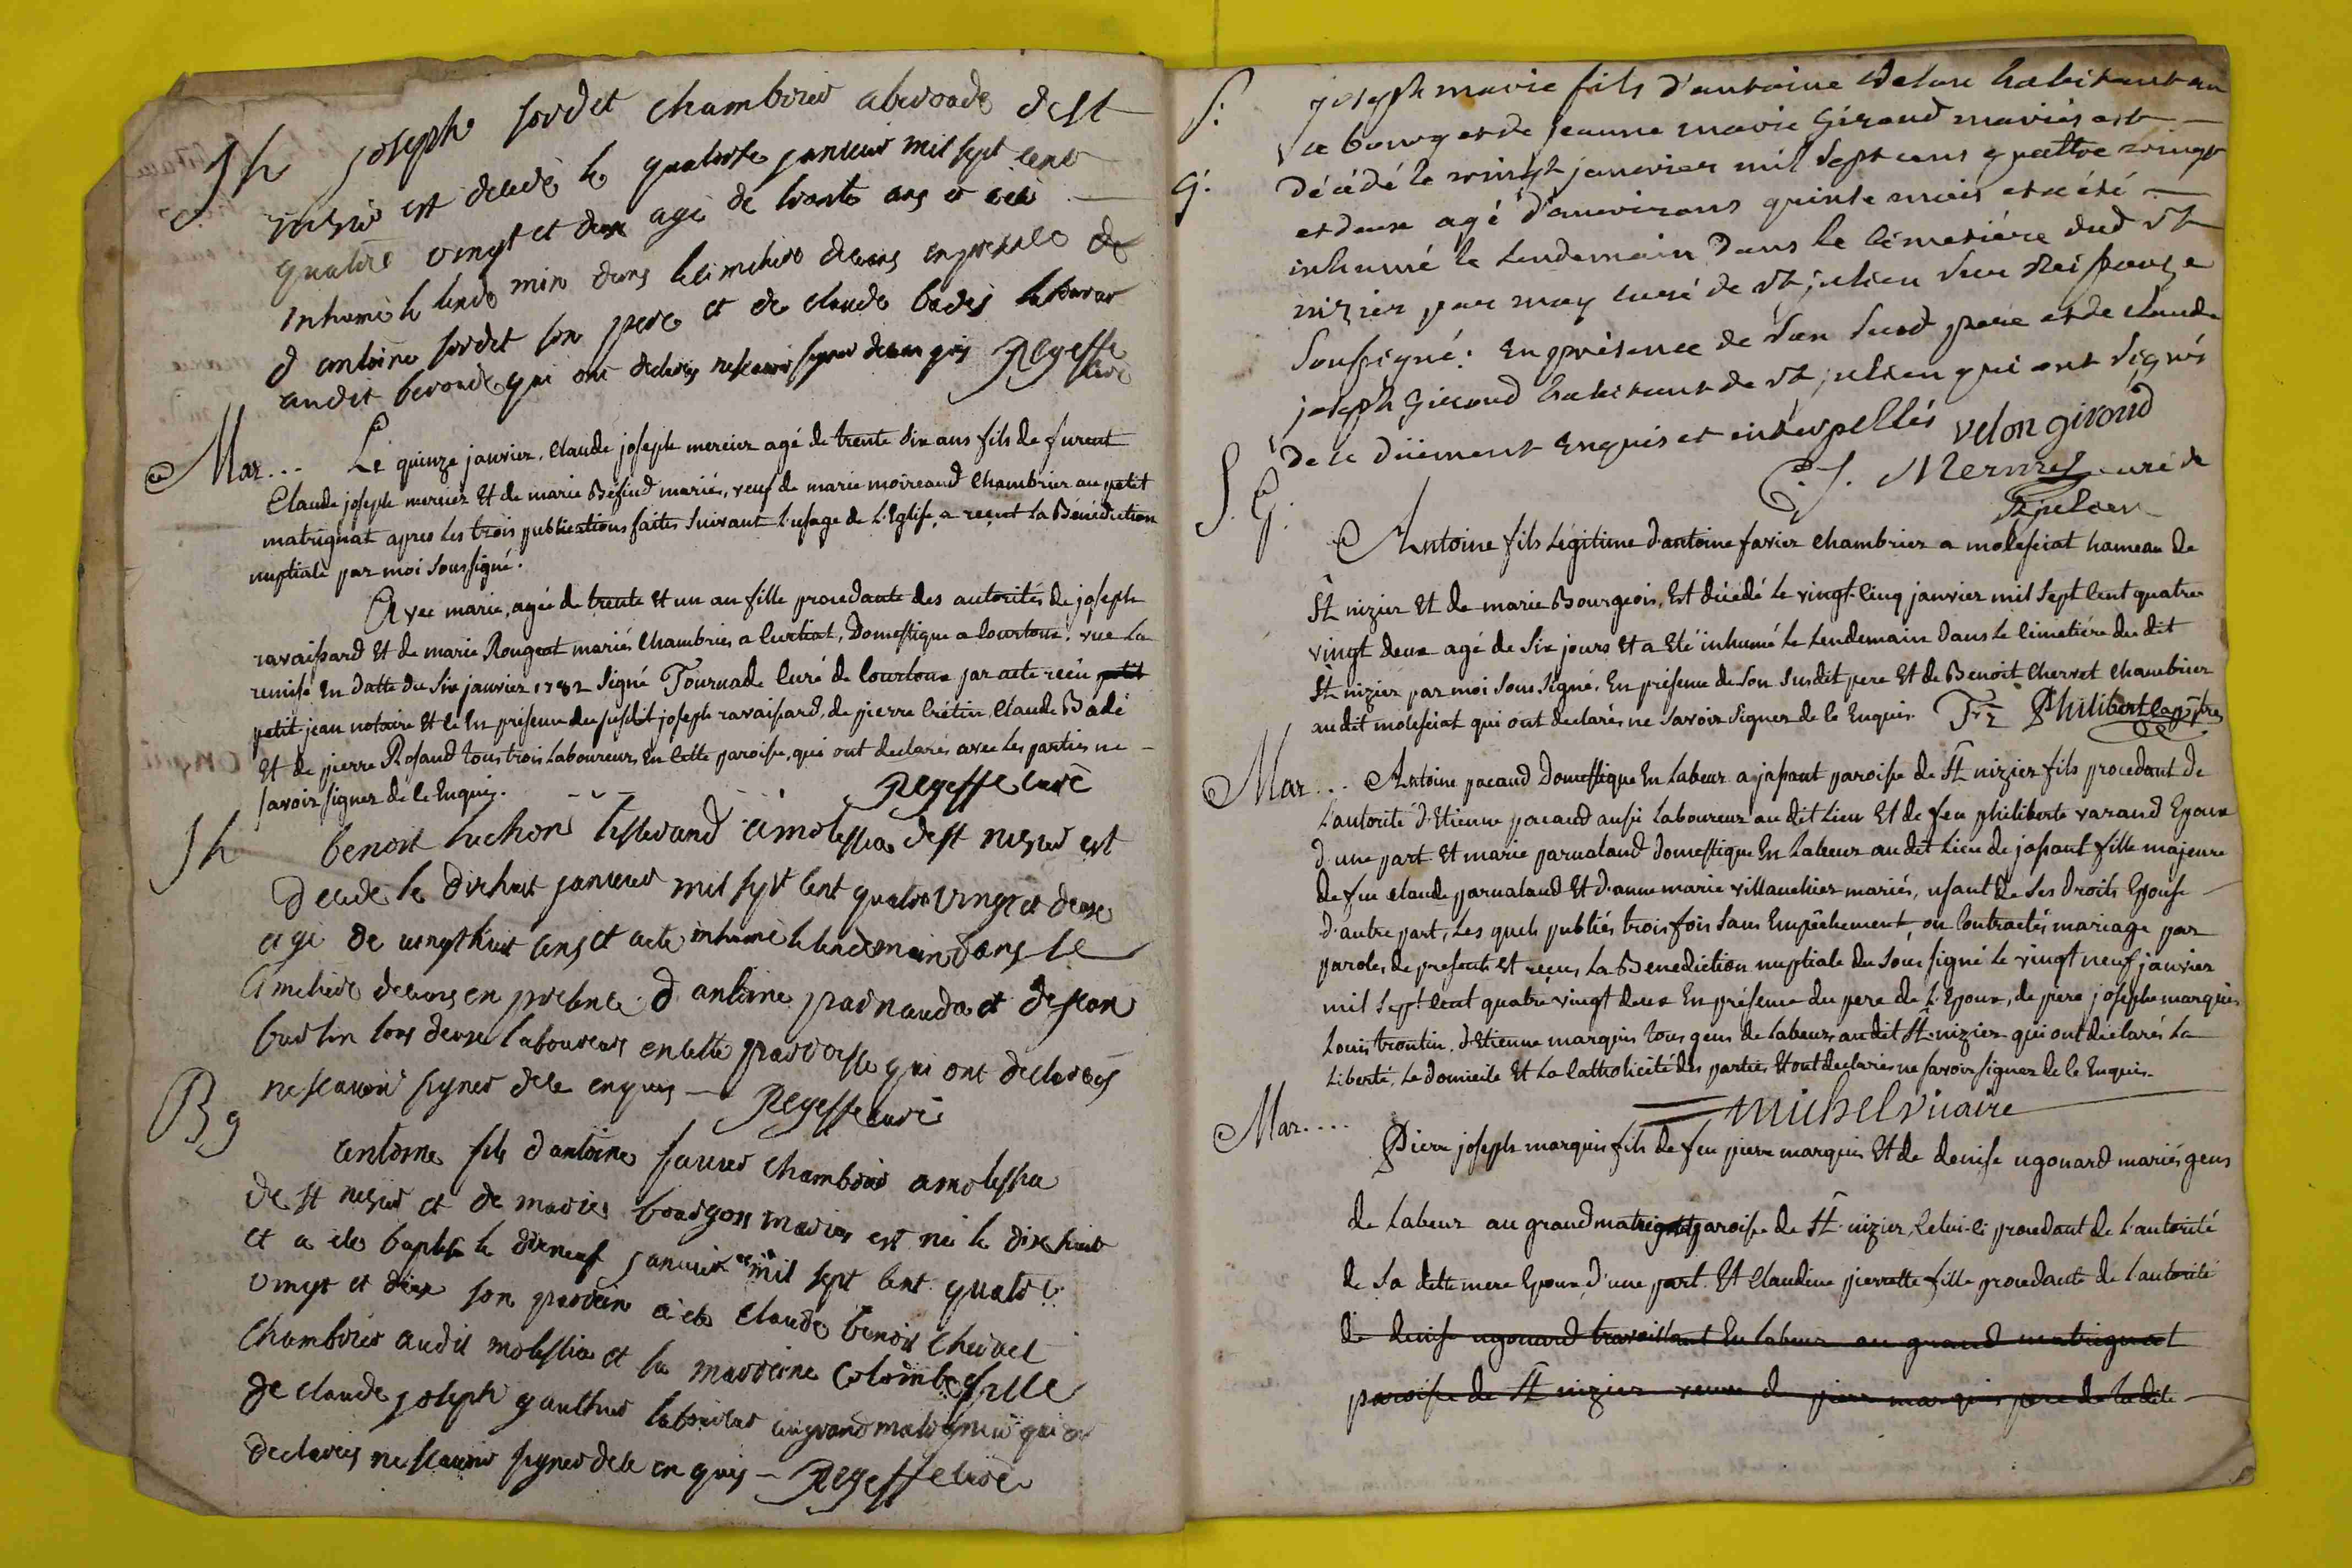 Sh joseph sordet chambrier aberoude de st
nizié est decedé le quatorse janvier mil sept cent
quatre vingt et deux agé de trante ans et a été
inhumé le lendemin dans le cimetiere deceans en presence de
d antoine sordet son pere et de claude badés laboureur
audit beroude qui ont declarés ne scavoir signer de ce enquis Regeffe
curé
Mar... Le quinze janvier, Claude joseph mercier agé de trente six ans fils de furent
Claude joseph mercier Et de marie Béfind mariés, veuf de marie moireaud Chambrier au petit
matrignat apres les trois publications faites suivant l'usage de L'Eglise, a reçut la Bénédiction
nuptiale par moi soussigné.
Avec marie, agée de trente Et un an fille procedante des autorités de joseph
ravaissard Et de marie Rougeat mariés Chambriers a Curtiat, Domestique a Courtoux. vue la
remise En datte du six janvier 1782 signé Tournade Curé de Courtoux par acte reçu petit
petit jean notaire Et le En présence du susdit joseph ravaissard, de pierre Crétin, Claude Badé
Et de pierre Rosand tous trois Laboureurs En cette paroisse, qui ont declarés avec les parties ne
savoir signer de ce Enquis. Regeffe curé
Sh benoit luchon tisserand a molessia de st nizier est
decedé le dixhuit janvier mil sept cent quatre vingt et deux
agé de vingt huit ans et a eté inhumé le lendemain dans le
cimetiere deceans en presence d antoine parnauda et de jean
burtin tous deux laboureurs en cette parroisse qui ont declarés
ne scavoir signer de ce enquis Regeffe curé
Bg antoine fils d antoine favier chambrier a molessia
de st nizier et de marie bourgois mariés est né le dixhuit
et a eté baptisé le dixneuf janvier mil sept cent quatre
vingt et deux son parrein a été claude benoit chervet
chambrier audit molessia et sa marreine Colombe fille
de claude joseph gauthier laboureur au grand matrignia qui ont
declarés ne scavoir signer de ce enquis Regeffe curé
S. joseph marie fils d'antoine velon habitant au
g. bourg et de jeanne marie Giroud mariés est
décédé le vingt janvier mil sept cens quattre vingt
et deux agé d'anvirons quinse mois et a été
inhumé le lendemain dans le cimetière dud st
nizier par moy curé de st julien sur Reissouze
soussigné: En présence de son susd père et de claude
joseph Giroud habitant de st julien qui ont signés
de ce düement Enquis et interpellés velon giroud
C. J. Mernrel curé de
St julien
S. G. Antoine fils Légitime d'antoine favier chambrier a molessiat hameau de
St nizier Et de marie Bourgeois, Est décédé le vingt-cinq janvier mil sept cent quatre
vingt deux agé de six jours Et a Eté inhumé le Lendemain Dans le Cimetiére du dit
St nizier par moi sous signé. En présence de son susdit pere Et de Benoit Chervet Chambrier
au dit molessiat qui ont declarés ne savoir signer de ce Enquis. Frz Philibert
Mar... Antoine pacaud Domestique En Labeur a japaut paroisse de St nizier fils procedant de
L'autorité d'Etienne pacaud aussi Laboureur au dit Lieu Et de feu philiberte varaud Epoux
d'une part Et marie parnaland domestique En Labeur au dit Lieu de japaut fille majeure
de feu claude parnaland Et d'anne marie villanchier mariés, usant de ses Droits Epouse
d'autre part, Les quels publiés trois fois sans Empêchement, on Contractés mariage par
paroles de presents Et reçus la Benediction nuptiale du sous signé le vingt neuf janvier
mil sept cent quatre vingt deux En présence du pere de L'Epoux, de piere joseph marquis,
Louis trontin, d'Etienne marquis tous gens de Labeurs au dit St nizier qui ont déclarés La
Liberté, Le domicile Et la Catholicité des parties Et ont declarés ne savoir signer de ce Enquis.
michel vicaire
Mar.... Piere joseph marquis fils de feu pierre marquis Et de denise ugonard mariés gens
de Labeur au grand matrignat paroisse de St nizier, Celui-ci procedant de l'autorité
de sa dette mere Epoux d'une part. Et Claudine pierrette fille procedante de l'autorité
de denise ugonard travaillant En Labeur au grand matrignat
paroisse de St nizier veuve d pierre marquis pere de la dite